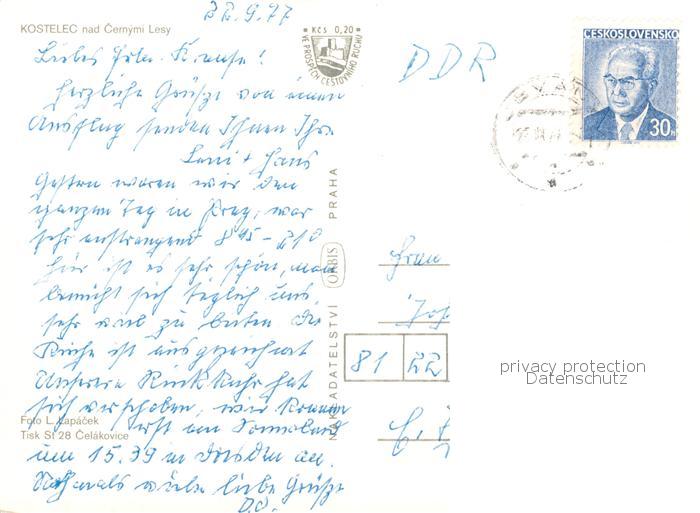 KOSTELEC nad Černými Lesy
22.9.77
Kčs 0,20
VE PROSPĚCH CESTOVNÍHO RUCHU
ČESKOSLOVENSKO
30h
DDR
Liebes Frl. Krause!
Herzliche Grüsze von einem
Ausflug senden Ihnen Ihre
Leni + Hans
Gestern waren wir den
ganzen Tag in Prag, war
sehr anstrengend 8 45 - 210
hier ist es sehr schön, man
bemüht sich täglich uns
sehr viel zu bieten die
Küche ist ausgezeichnet
Unsere Rückkehr hat
sich verschoben, wir kommen
erst am Sonnabend
um 15.39 in Dresden an.
Nochmals viele liebe Grüsze
D.O.
Foto L. Lapáček
Tisk St 28 Čelákovice
NAKLADATELSTVÍ ORBIS PRAHA
Frau
Joh
81 22
privacy protection
Datenschutz